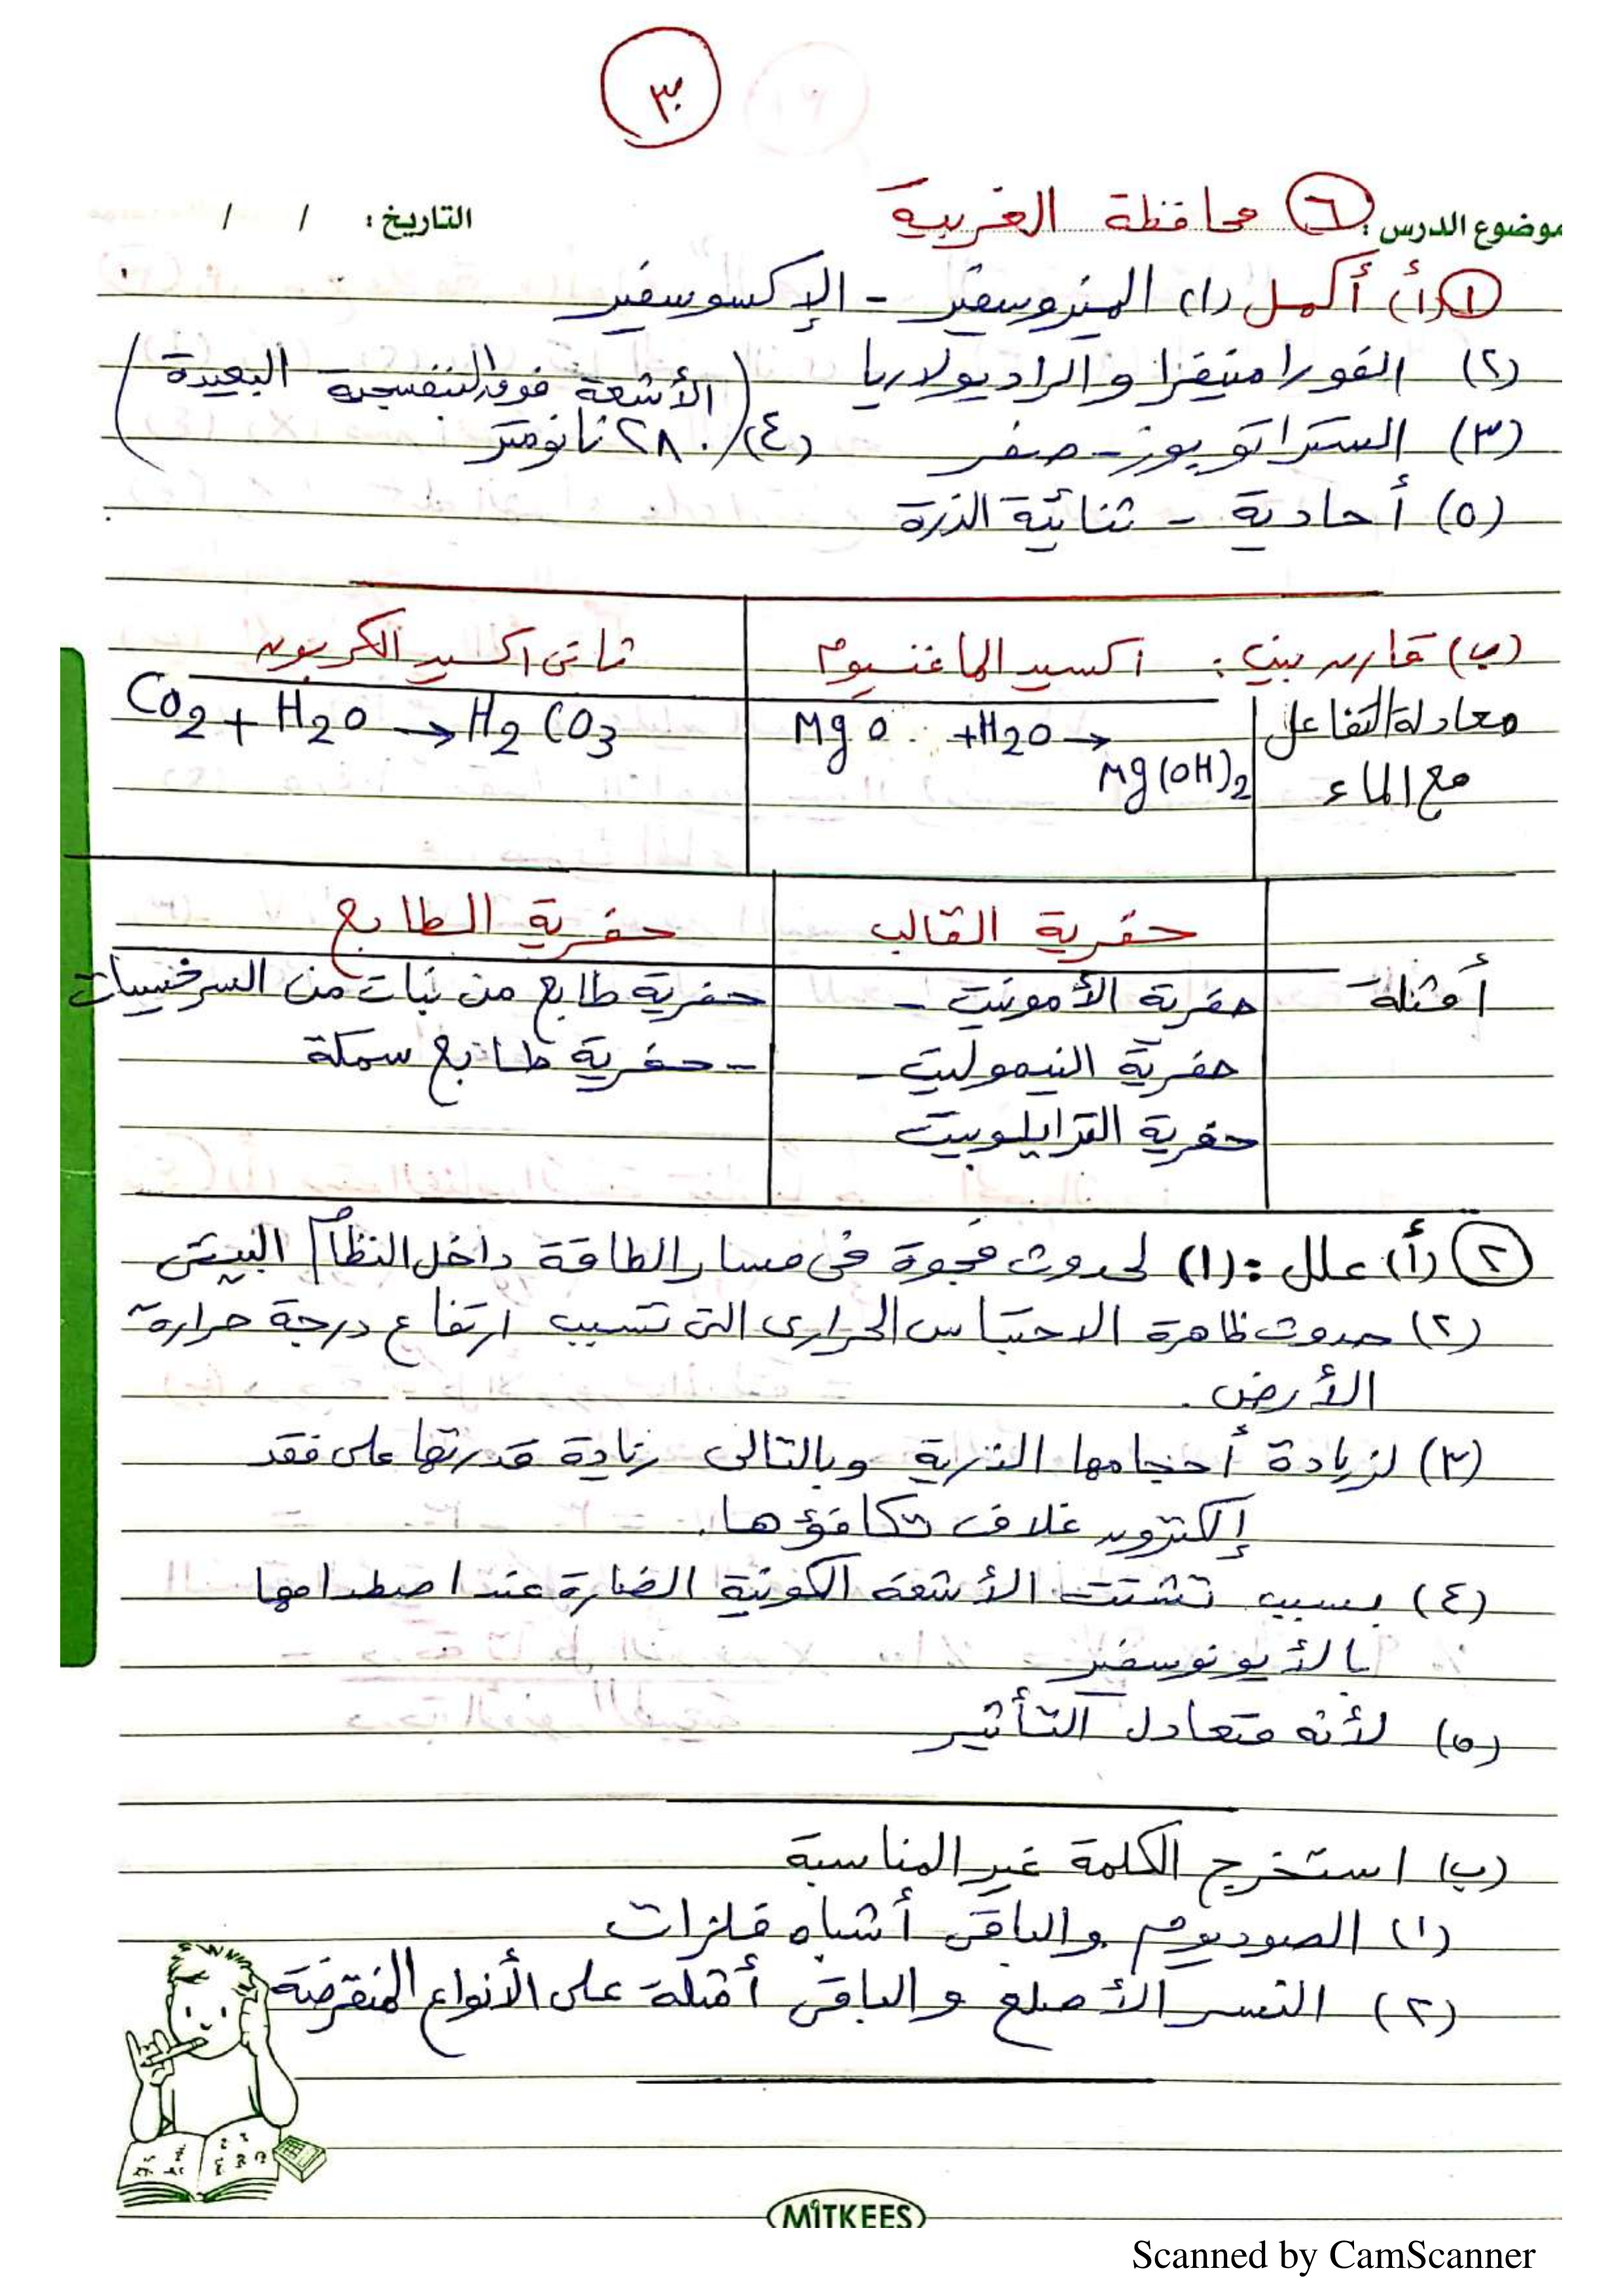 ٣
موضوع الدرس : ٦ محافظة الغربية
التاريخ : / /
١ (أ) أكمل (١) الميزوسفير - الإكسوسفير
(٢) الفورامنيفرا والراديولاريا
(الأشعة فوق البنفسجية البعيدة)
(٣) الستراتوبوز - صفر (٤) ٢٨٠ نانومتر
(٥) أحادية - ثنائية الذرة
(ب) قارن بين : اكسيد الماغنسيوم
ثانى اكسيد الكربون
معادلة التفاعل مع الماء
MgO + H2O → Mg(OH)2
CO2 + H2O → H2CO3
حفرية القالب
حفرية الطابع
أمثلة
حفرية الأمونيت -
حفرية النيموليت -
حفرية الترايلوبيت
حفرية طابع من نبات من السرخسيات
- حفرية طابع سمكة
٢ (أ) علل : (١) لحدوث فجوة فى مسار الطاقة داخل النظام البيئى
(٢) حدوث ظاهرة الاحتباس الحرارى التى تسبب ارتفاع درجة حرارة
الأرض .
(٣) لزيادة أحجامها الذرية وبالتالى زيادة قدرتها على فقد
إلكترون غلاف تكافؤها.
(٤) بسبب تشتت الأشعة الكونية الضارة عند اصطدامها
بالأيونوسفير
(٥) لأنه متعادل التأثير
(ب) استخرج الكلمة غير المناسبة
(١) الصوديوم والباقى أشباه فلزات
(٢) النسر الأصلع والباقى أمثلة على الأنواع المنقرضة
MITKEES
Scanned by CamScanner